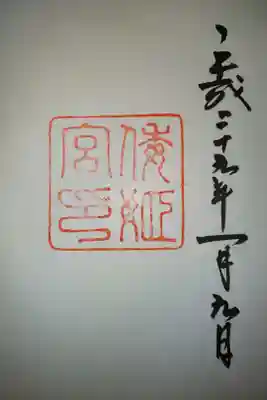 平成二十九年一月九日
倭姫
宮印